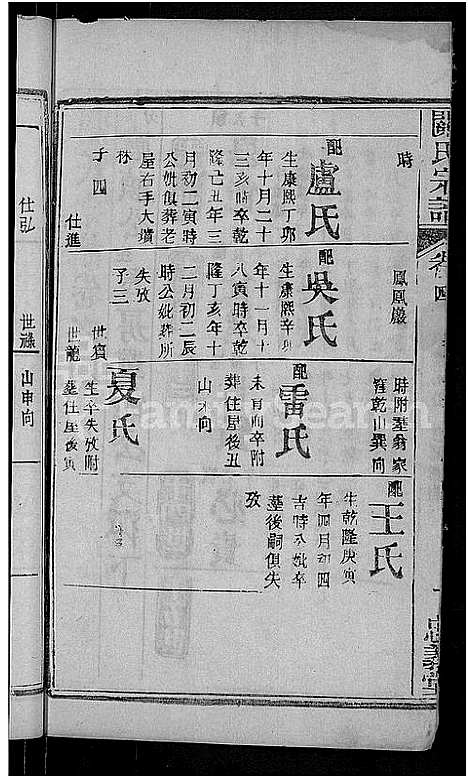 時
配盧氏
生康熙丁卯
年十月二十
三亥時卒乾
隆己亥年三
月初二寅時
公妣俱葬老
屋右手大墳
林
子四
仕進
鳳凰嚴
配吳氏
生康熙辛
年十一月十
八寅時卒乾
隆丁亥年十
二月初二辰
時公妣葬所
失攷
子三
世寶
世龍
時附葬翁家
窪乾山巽向
配雷氏
未育而卒附
葬住屋後丑
山未向
夏氏
生卒失攷附
葬住屋後寅
配王氏
生乾隆庚寅
年四月初四
吉時公妣卒
葬後嗣俱失
攷
仕弘
世祿
山申向
氏宗譜
卷四
忠義堂
FamilySearch